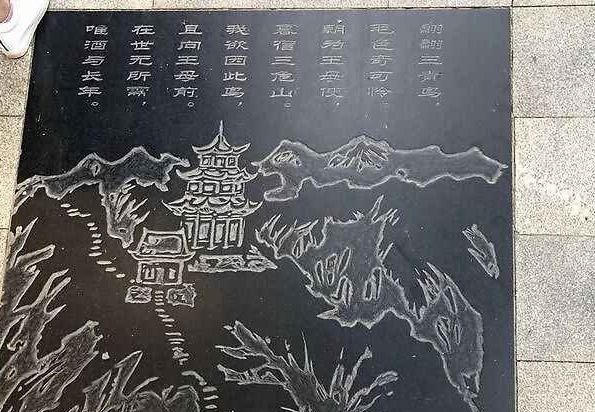 翩翩三青鸟，
毛色奇可怜。
朝为王母使，
暮宿三危山。
我欲因此鸟，
且向王母前。
在世无所需，
唯酒与长年。